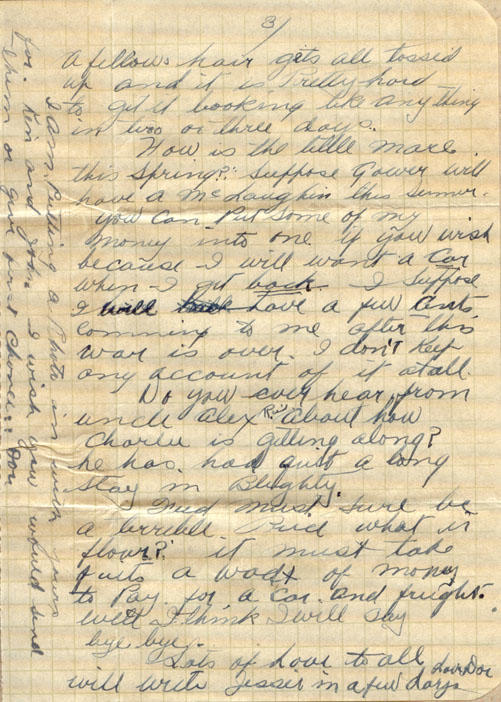 3/
a fellows hair gets all tossed
up and it is Pretty hard
to get it looking like any thing
in two or three days.
How is the little mare
this Spring? Suppose Gower will
have a McLaughlin this Summer.
you can Put some of my
money into one if you wish
because I will want a Car
when I get back. I Suppose
I will have a few Cents
Comming to me after this
war is over. I don't Keep
any account of it atall
Do you ever hear from
uncle Alex about how
Charlie is gitting along?
he has had quit a long
Stay in Blighty.
Feed must sure be
a terrible Price what is
flour? it must take
quite a wad of money
to Pay for a Car and fright.
well I think I will say
bye bye.
Lots of Love to all
will write Jesse in a few days
I am Putting a Photo in with yours
for Ken and you. I wish you would send
them or give first Chance.